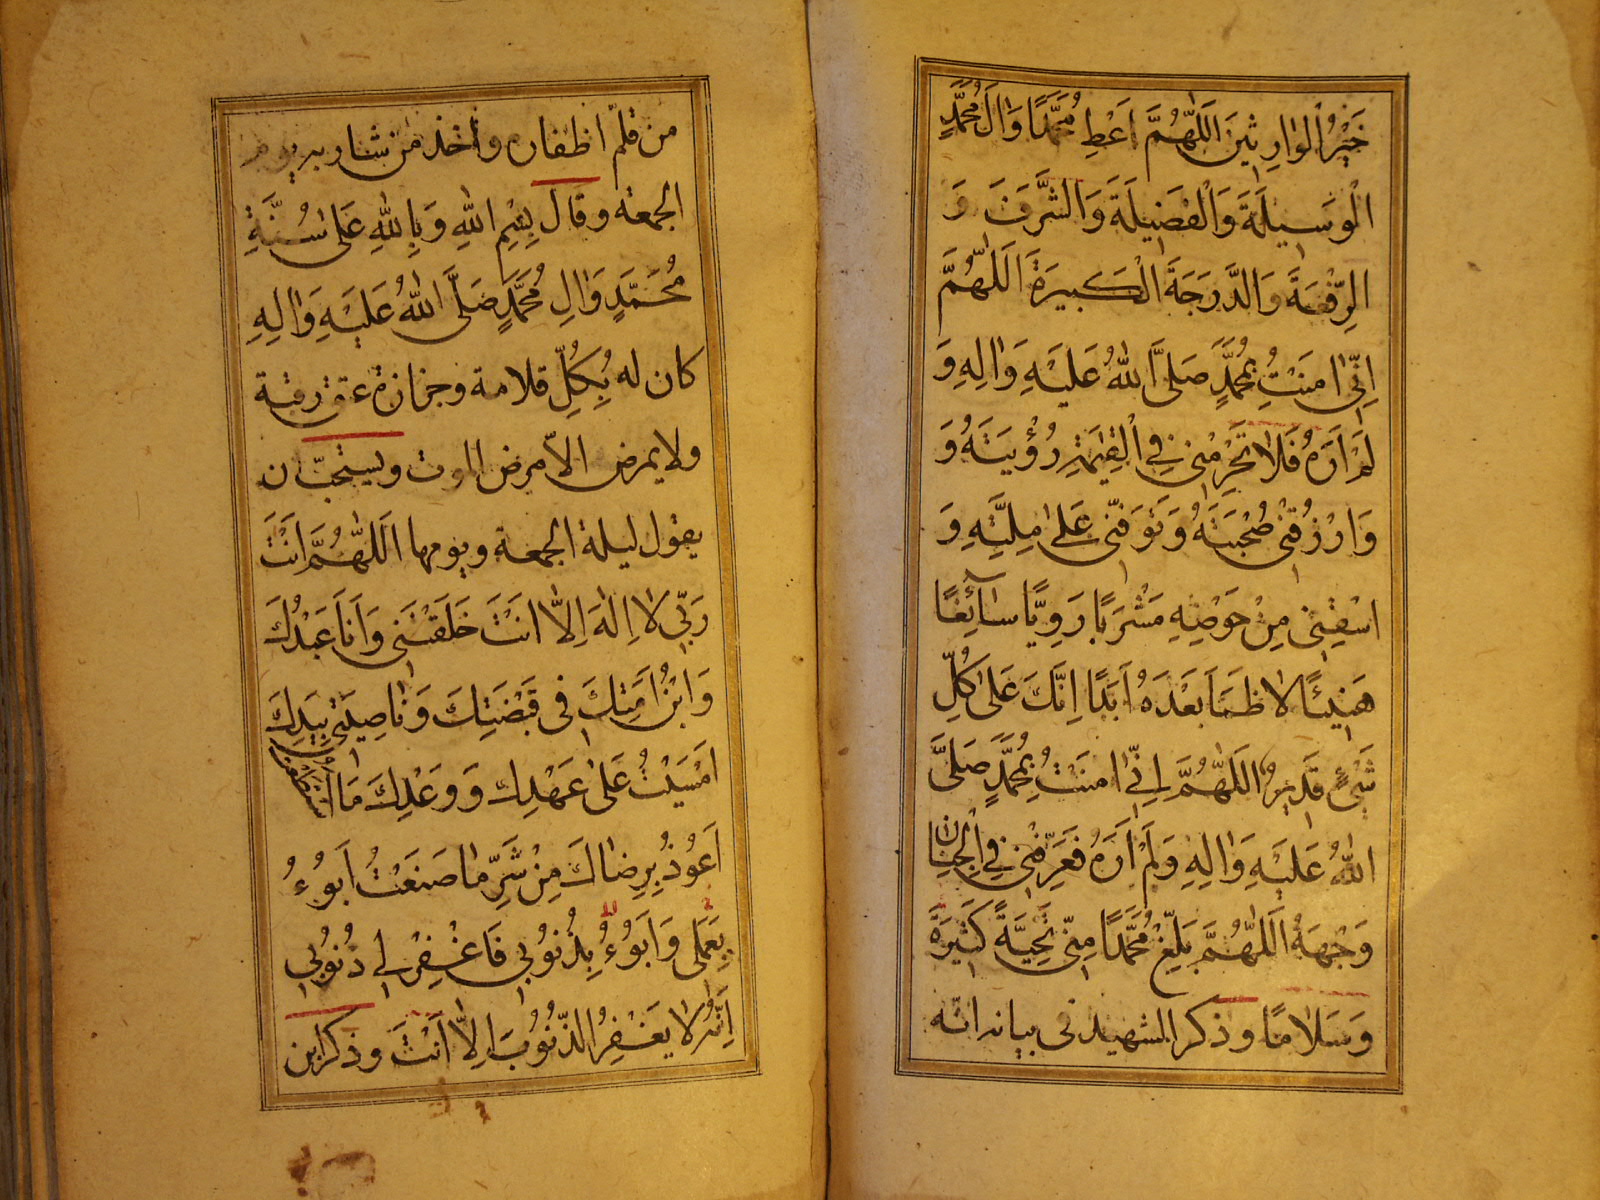 خَيْرُ الْوٰارِثِينَ اَللّٰهُمَّ اَعْطِ مُحَمَّدًا وَاٰلَ مُحَمَّدٍ
الْوَسِيلَةَ وَالْفَضِيلَةَ وَالشَّرَفَ وَ
الرِّفْعَةَ وَالدَّرَجَةَ الْكَبِيرَةَ اَللّٰهُمَّ
اِنِّى اٰمَنْتُ بِمُحَمَّدٍ صَلَّى اللّٰهُ عَلَيْهِ وَاٰلِهِ وَ
لَمْ اَرَهُ فَلاٰ تَحْرِمْنِى فِى الْقِيٰمَةِ رُؤْيَتَهُ وَ
وَارْزُقْنِى صُحْبَتَهُ وَتَوَفَّنِى عَلىٰ مِلَّتِهِ وَ
اسْقِنِى مِنْ حَوْضِهِ مَشْرَبًا رَوِيًّا سَآئِغًا
هَنِيئًا لاٰ ظَمَاَ بَعْدَهُ اَبَدًا اِنَّكَ عَلىٰ كُلِّ
شَىْءٍ قَدِيرٌ اَللّٰهُمَّ اِنِّى اٰمَنْتُ بِمُحَمَّدٍ صَلَّى
اللّٰهُ عَلَيْهِ وَاٰلِهِ وَلَمْ اَرَهُ فَعَرِّفْنِى فِى الْجِنَانِ
وَجْهَهُ اَللّٰهُمَّ بَلِّغْ مُحَمَّدًا مِنِّى تَحِيَّةً كَثِيرَةً
وَسَلاٰمًا وذكر الشهيد فى بيانه انّه
من قلّم اظفاره واخذ من شاربه يوم
الجمعة وقال بِسْمِ اللّٰهِ وَبِاللّٰهِ عَلىٰ سُنَّةِ
مُحَمَّدٍ وَاٰلِ مُحَمَّدٍ صَلَّى اللّٰهُ عَلَيْهِ وَاٰلِهِ
كان له بِكُلِّ قلامة وجزازة عتق رقبة
ولا يمرض الاّ مرض الموت ويستحبّ ان
يقول ليلة الجمعة ويومها اَللّٰهُمَّ اَنْتَ
رَبِّى لاٰ اِلٰهَ اِلاّٰ اَنْتَ خَلَقْتَنِى وَاَنَا عَبْدُكَ
وَابْنُ اَمَتِكَ فِى قَبْضَتِكَ وَنٰاصِيَتِى بِيَدِكَ
اَمْسَيْتُ عَلىٰ عَهْدِكَ وَوَعْدِكَ مَا اسْتَطَعْتُ
اَعُوذُ بِرِضٰاكَ مِنْ شَرِّ مٰا صَنَعْتُ اَبُوءُ
بِعَمَلِى وَاَبُوءُ بِذُنُوبِى فَاغْفِرْ لِى ذُنُوبِى
اِنَّهُ لاٰ يَغْفِرُ الذُّنُوبَ اِلاّٰ اَنْتَ وذكر ابن